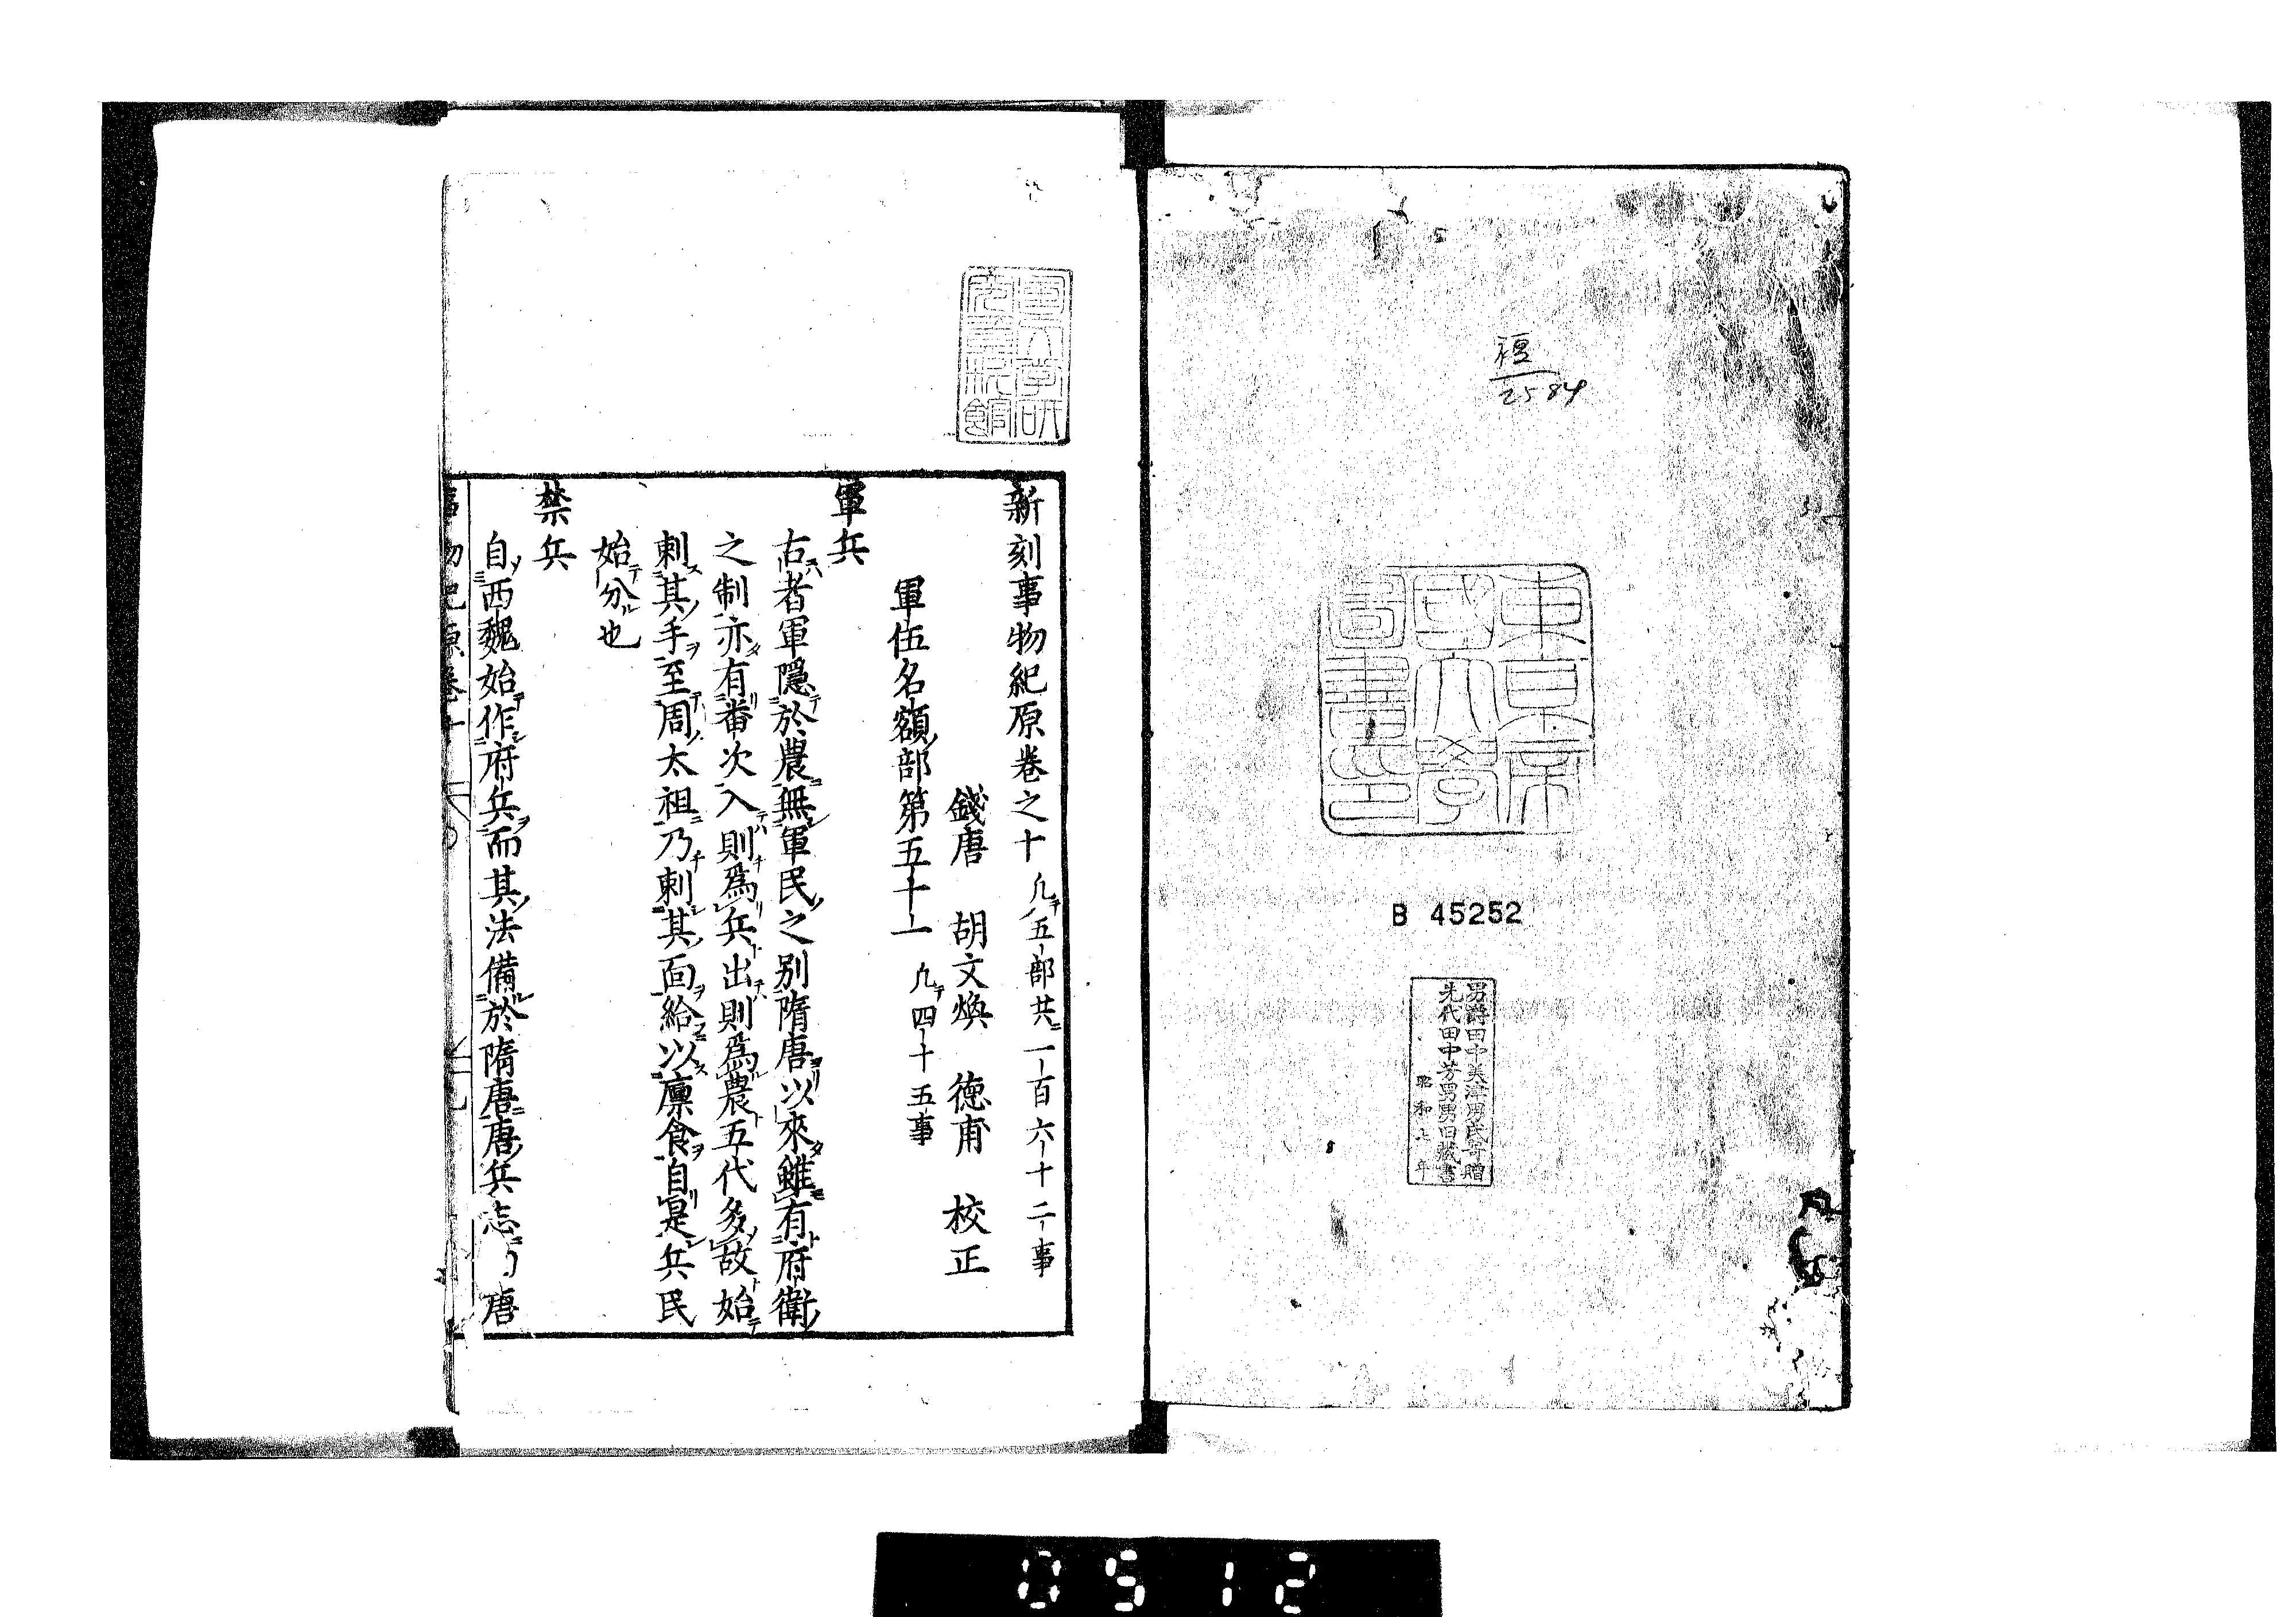 B 45252
2584
東京帝國大學圖書印
男爵田中美津男氏寄贈
先代田中芳男男旧藏書
新刻事物紀原卷之十 凢五部共一百六十二事
錢唐 胡文煥 德甫 校正
軍伍名額部第五十一 凢四十五事
軍兵
古者軍隱於農無軍民之别隋唐以來雖有府衛
之制亦有番次入則爲兵出則爲農五代多故始
刺其手至周太祖乃刺其面給以廪食自是兵民
始分也
禁兵
自西魏始作府兵而其法備於隋唐唐兵志 唐
0512